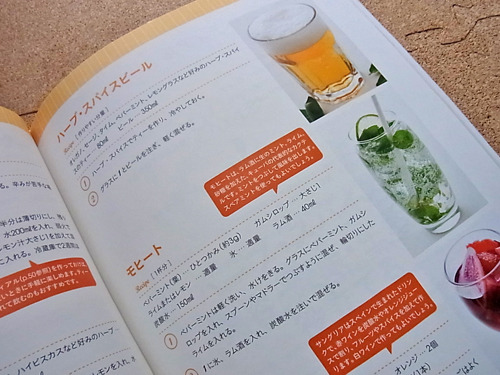 ハーブ・スパイスビール
Recipe [作りやすい分量]
オレガノ、セージ、タイム、ペパーミント、レモングラスなど好みのハーブ・スパイ
スのティー … 80ml ビール … 350ml
① ハーブ・スパイスでティーを作り、冷やしておく。
② グラスに①とビールを注ぎ、軽く混ぜる。
モヒートは、ラム酒に生のミント、ライム、
砂糖を加えた、キューバの代表的なカクテ
ル。ミントをつぶして風味を出します。
スペアミントを使ってもよいでしょう。
モヒート
Recipe [1杯分]
ペパーミント(葉) … ひとつかみ(約3g) ガムシロップ … 大さじ1
ライムまたはレモン … 適量 氷 … 適量 ラム酒 … 40ml
炭酸水 … 150ml
① ペパーミントは軽く洗い、水けをきる。グラスにペパーミント、ガムシ
ロップを入れ、スプーンやマドラーでつぶすように混ぜ、輪切りにした
ライムを入れる。
①に氷、ラム酒を入れ、炭酸水を注いで混ぜる。
サングリアはスペインで生まれたドリン
クで、赤ワインを炭酸水やオレンジジュー
スで割り、フルーツやスパイスを加えて作
ります。白ワインで作ってもよいでしょう。
オレンジ … 2個
る。辛みが苦手な
半分は薄切りにし、残り
水200mlを入れ、中火で
レモン汁大さじ1を加えて
に入れる。冷蔵庫で2週間ほ
(p.50参照)を作っておけば、
いときに手軽に楽しめます。ティー
れて飲むのもおすすめです。
ハイビスカスなど好みのハーブ